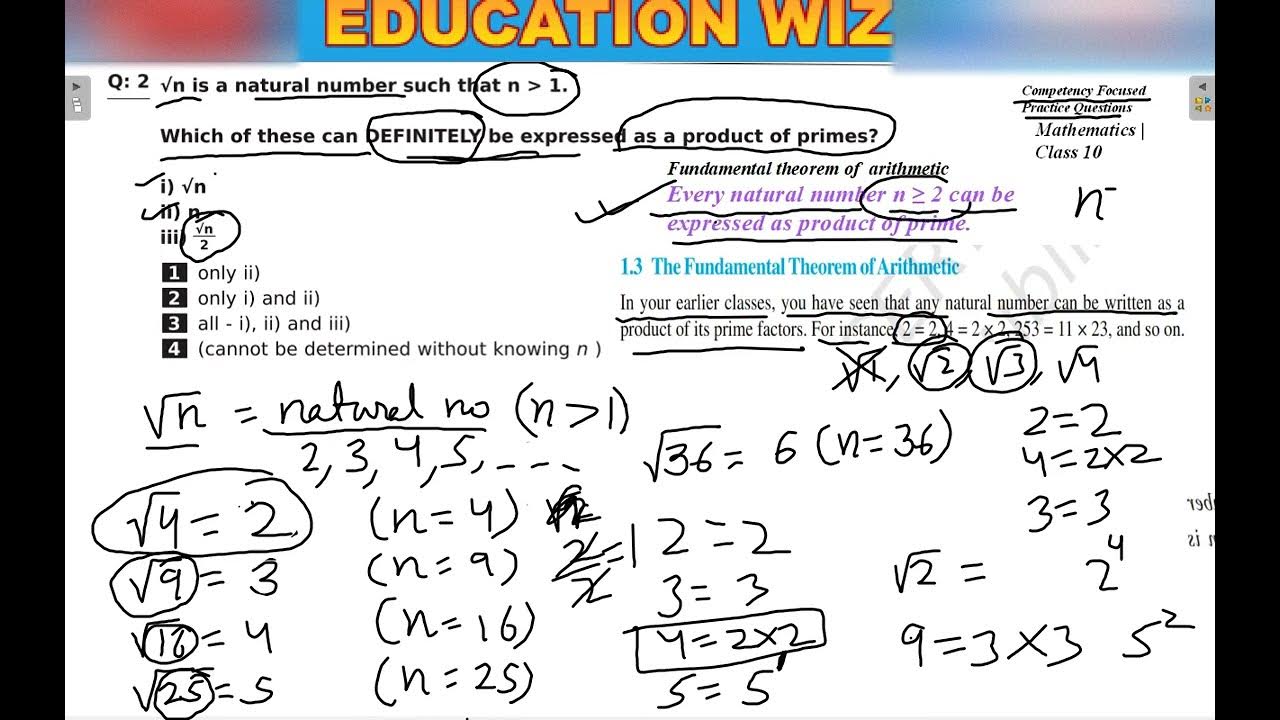 EDUCATION WIZ
Q: 2 √n is a natural number such that n > 1.
Which of these can DEFINITELY be expressed as a product of primes?
i) √n
ii) n
iii) √n/2
1 only ii)
2 only i) and ii)
3 all - i), ii) and iii)
4 (cannot be determined without knowing n )
Competency Focused
Practice Questions
Mathematics |
Class 10
Fundamental theorem of arithmetic
Every natural number n ≥ 2 can be
expressed as product of prime.
n
1.3 The Fundamental Theorem of Arithmetic
In your earlier classes, you have seen that any natural number can be written as a
product of its prime factors. For instance, 2 = 2, 4 = 2 × 2, 253 = 11 × 23, and so on.
√1, √2, √3, √4
√n = natural no (n>1)
2, 3, 4, 5, - - - -
√4 = 2 (n=4)
√9 = 3 (n=9)
√16 = 4 (n=16)
√25 = 5 (n=25)
√36 = 6 (n=36)
2/2 = 1
2 = 2
3 = 3
4 = 2×2
5 = 5
2 = 2
4 = 2×2
3 = 3
√2 = 2⁴
9 = 3×3 5²